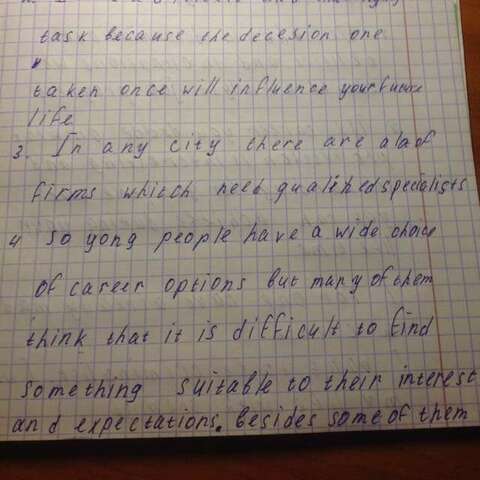 task because the decesion one
taken once will influence your future
life
3. In any city there are alaof
firms which need qualified specialists
4 so yong people have a wide choice
of career options but many of them
think that it is difficult to find
something suitable to their interest
and expectations. Besides some of them